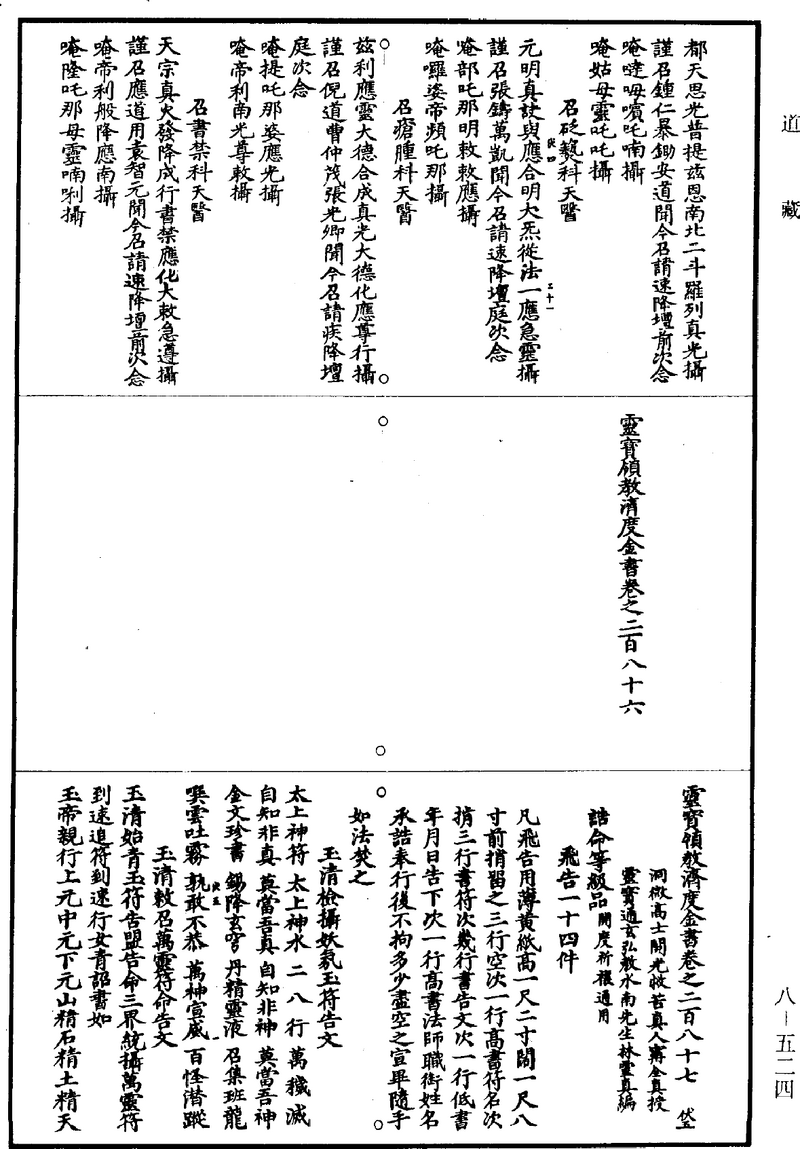 道藏
都天思光普提茲恩南北二斗羅列真光攝
謹召鍾仁暴鋤安道聞今召請速降壇前次念
唵㗳毋嚬吒喃攝
唵姑毋靈吒吒攝
召砭爇科天醫
元明真訣與應合明大炁從法一應急靈攝
謹召張鑄萬凱聞今召請速降壇庭次念
唵部吒那明敕敕應攝
唵囉娑帝頻吒那攝
召瘡腫科天醫
茲利應靈大德合成真光大德化應尊行攝
謹召倪道曹仲茂張光卿聞今召請疾降壇
庭次念
唵提吒那娑應光攝
唵帝利南光尊敕攝
召書禁科天醫
天宗真火發降成行書禁應化大敕急遵攝
謹召應道用袁智元聞今召請速降壇前次念
唵帝利般降應南攝
唵隆吒那毋靈喃唎攝
靈寶領教濟度金書卷之二百八十六
靈寶領教濟度金書卷之二百八十七
洞微高士開光救苦真人甯全真授
靈寶通玄弘教水南先生林靈真編
誥命等級品開度祈禳通用
飛告一十四件
凡飛告用薄黃紙高一尺二寸闊一尺八
寸前捎留之三行空次一行高書符名次
捎三行書符次幾行書告文次一行低書
年月日告下次一行高書法師職銜姓名
承誥奉行後不拘多少盡空之宣畢隨手
如法焚之
玉清檢攝妖氛玉符告文
太上神符 太上神水 二八行 萬穢滅
自知非真 莫當吾真 自知非神 莫當吾神
金文珍書 錫降玄穹 丹精靈液 召集班龍
噀雲吐霧 孰敢不恭 萬神宣威 百怪潛蹤
玉清敕召萬靈符命告文
玉清始青玉符告盟告命三界統攝萬靈符
到速追符到速行女青詔書如
玉帝親行上元中元下元山精石精土精天
八－五二四